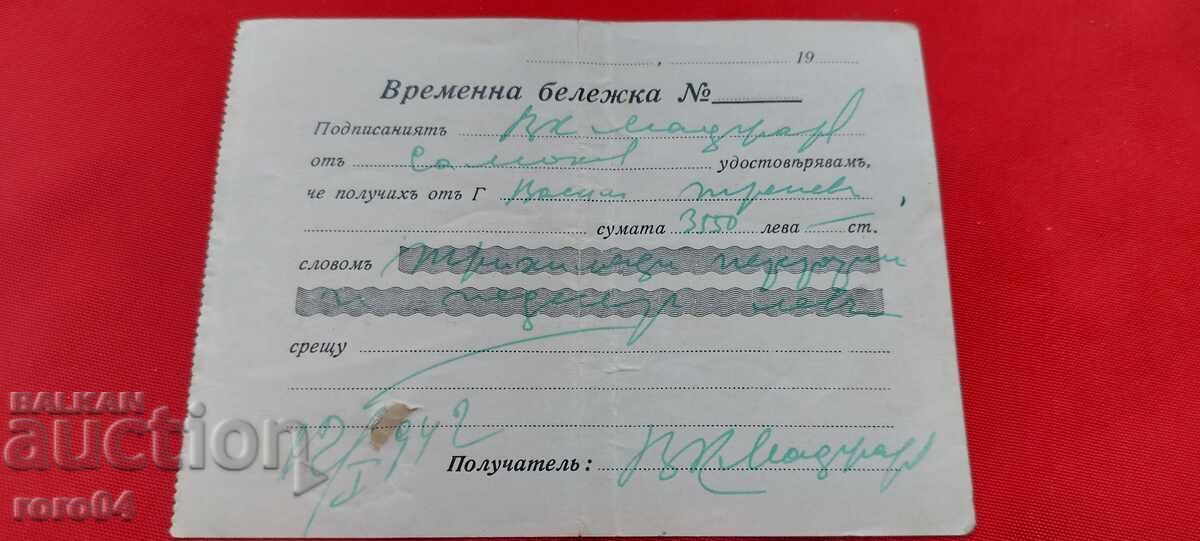 19
Временна бележка №
Подписаниятъ ВК Маджар
отъ Самоков удостовѣрявамъ,
че получихъ отъ Г Васил Тренев,
сумата 3550 лева — ст.
словомъ трихиляди петстотин
и педесет лева
срещу
12/I 942
Получатель: ВКМаджар
BALKAN
auction
roro04